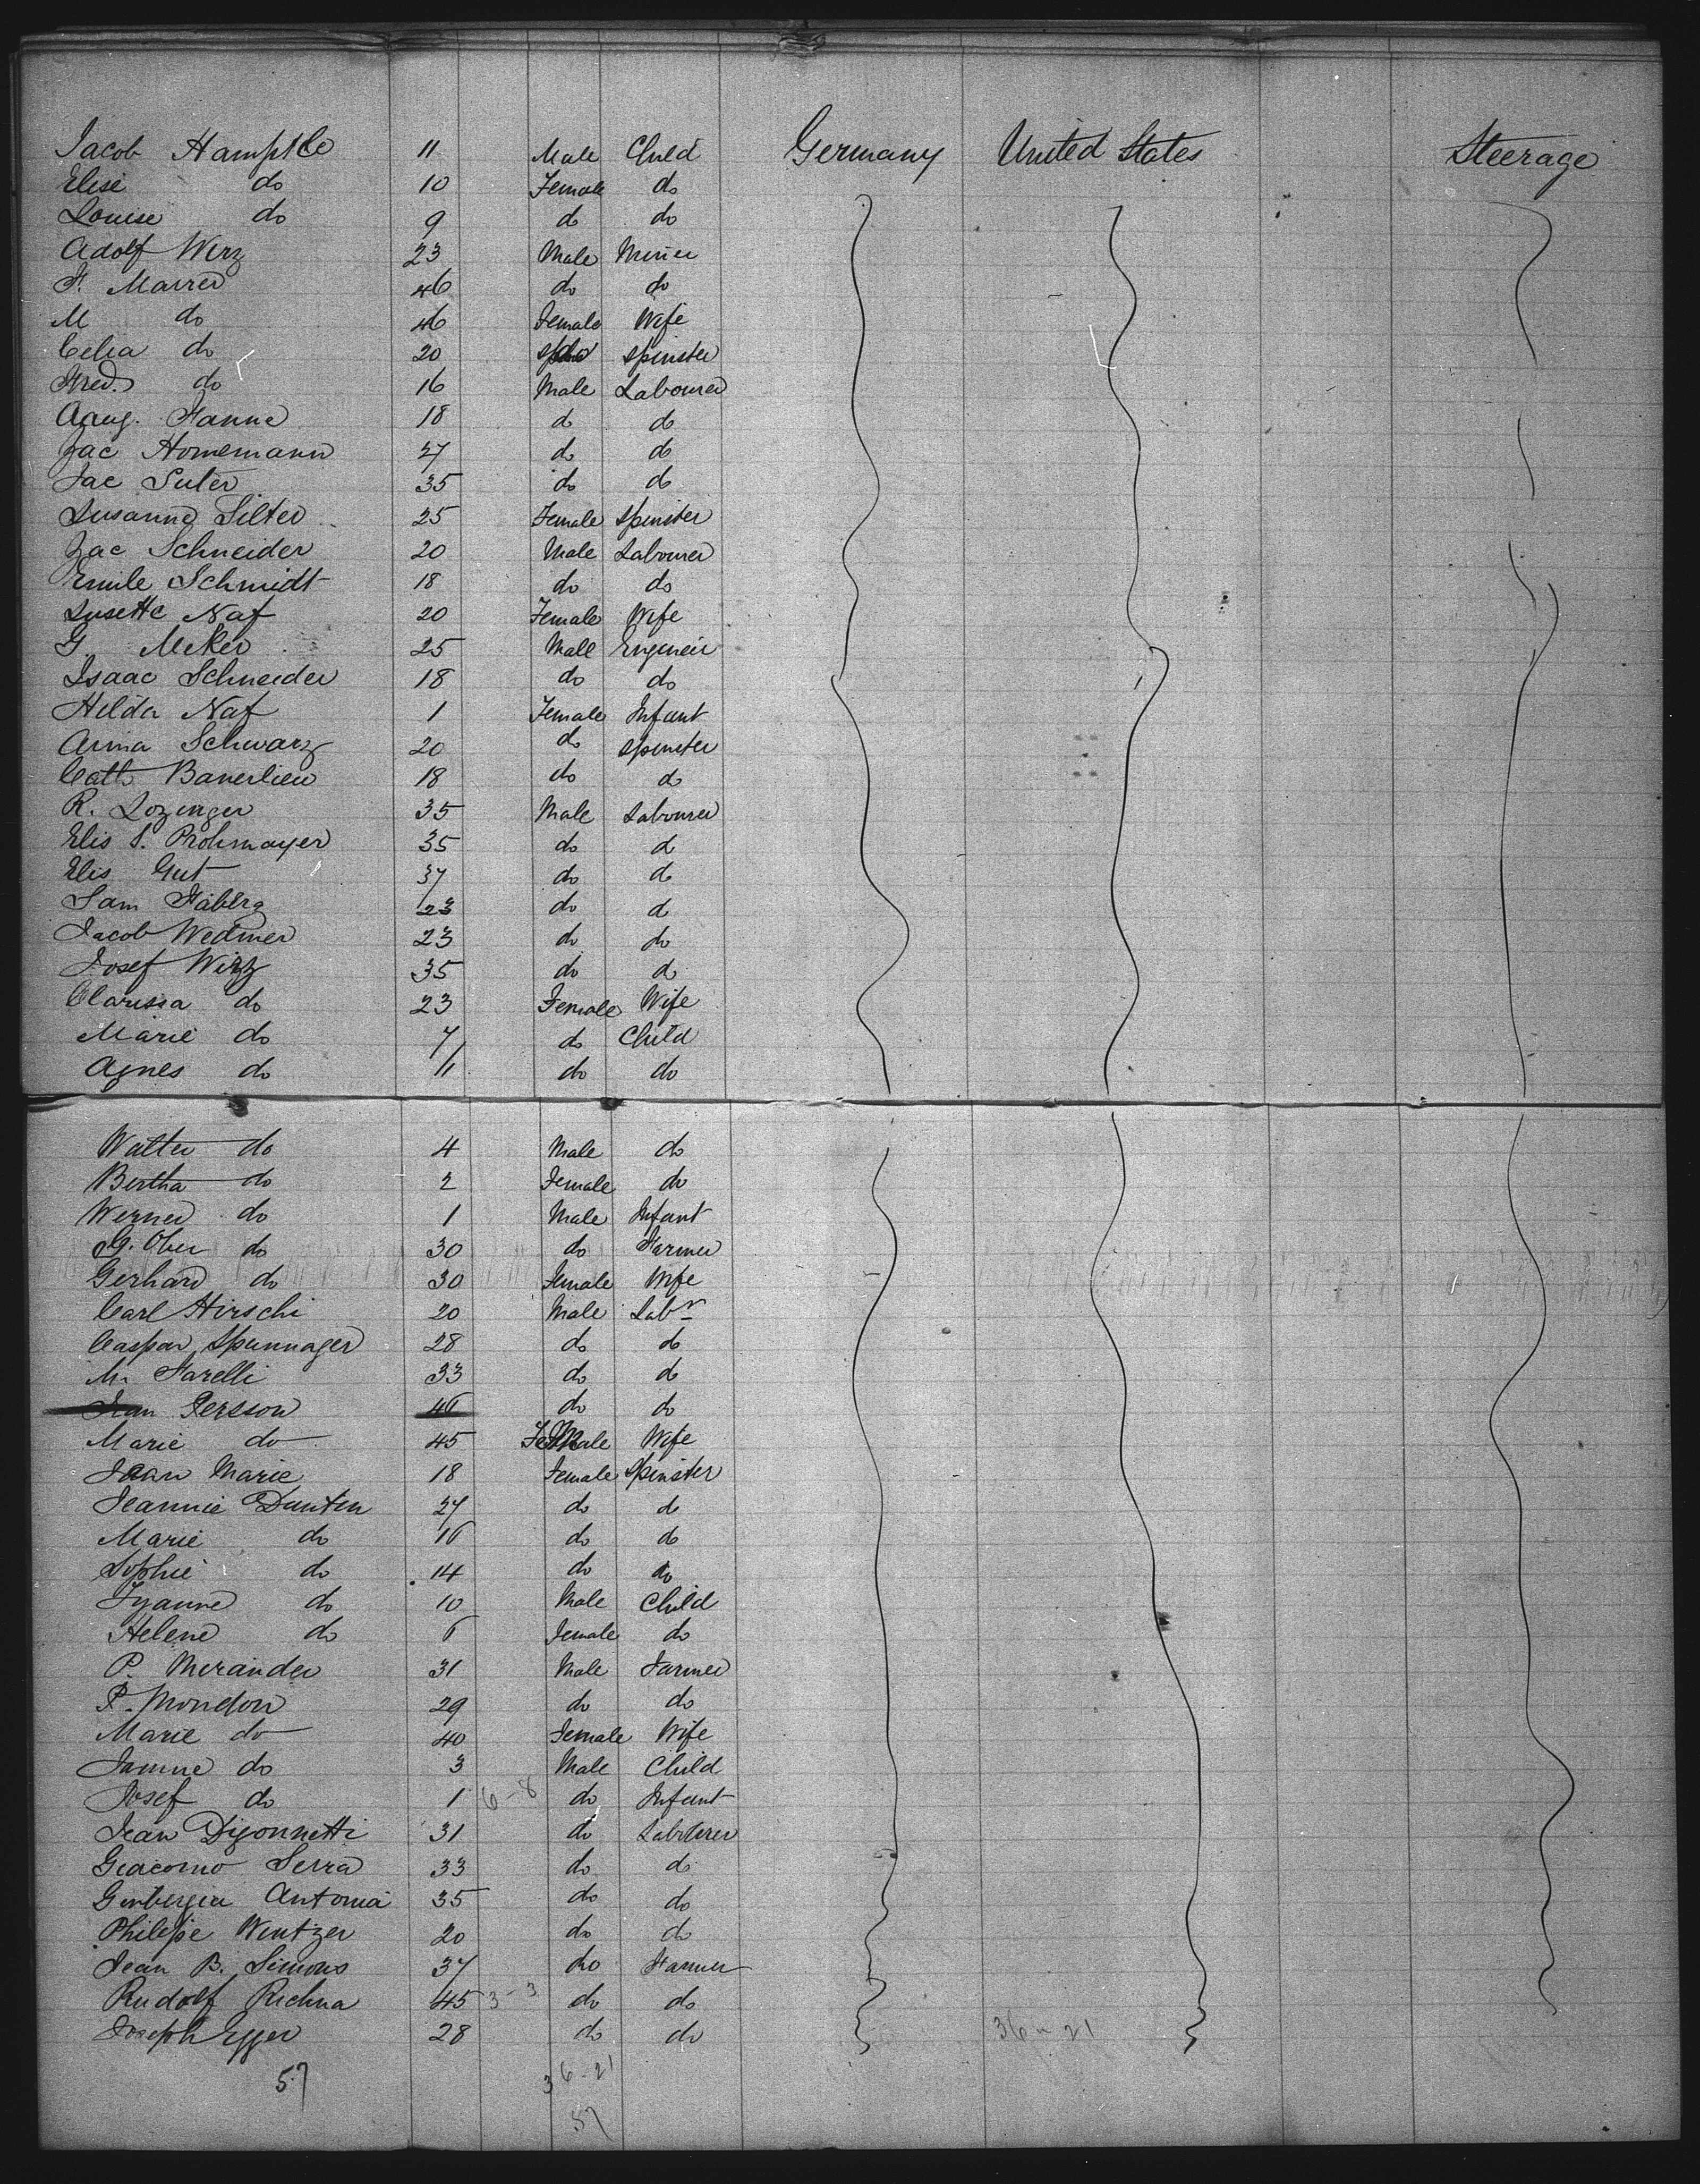 Jacob Hampt 11 Male Child Germany United States Steerage
Elise do 10 Female do
Louise do 9 do do
Adolf Wirz 23 Male Miner
F. Maurer 46 do do
M do 46 Female Wife
Celia do 20 do Spinster
Fred. do 16 Male Labourer
Aaug. Fanne 18 do do
Jac Hornemann 27 do do
Jac Suter 35 do do
Susanna Silter 25 Female Spinster
Jac Schneider 20 Male Labourer
Emile Schmidt 18 do do
Susette Naf 20 Female Wife
G. Meker 25 Male Engineir
Isaac Schneider 18 do do
Hilda Naf 1 Female Infant
Anna Schwarz 20 do Spinster
Cath Banerlien 18 do do
R. Lozinger 35 Male Labourer
Elis S. Prohmayer 35 do do
Elis Gut 37 do do
Sam Faberg 23 do do
Jacob Wedmer 23 do do
Josef Wirz 35 do do
Clarissa do 23 Female Wife
Marie do 7 do Child
Agnes do 11 do do
Walter do 4 Male do
Bertha do 2 Female do
Werner do 1 Male Infant
G. Ober do 30 do Farmer
Gerhard do 30 Female Wife
Carl Hirschi 20 Male Labr
Caspar Spunnager 28 do do
M. Farelli 33 do do
Jean Persson 46 do do
Marie do 45 Female Wife
Jean Marie 18 Female Spinster
Jeannie Dunten 27 do do
Marie do 16 do do
Sophie do 14 do do
Fyanne do 10 Male Child
Helene do 6 Female do
P. Merander 31 Male Farmer
P. Mondon 29 do do
Marie do 40 Female Wife
Janne do 3 Male Child
Josef do 1 6-8 do Infant
Jean Digonnetti 31 do Labourer
Giacomo Serra 33 do do
Antonia 35 do do
Philipe Wentzer 20 do do
Jean B. Simons 37 do Farmer
Rudolf Richna 45 3-3 do do
Joseph Egger 28 do do 36-21
57 36-21
57